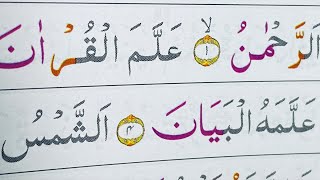 اَلرَّحْمٰنُ ۙ﴿۱﴾ عَلَّمَ الْقُرْاٰنَ
عَلَّمَهُ الْبَيَانَ ﴿۴﴾ اَلشَّمْسُ